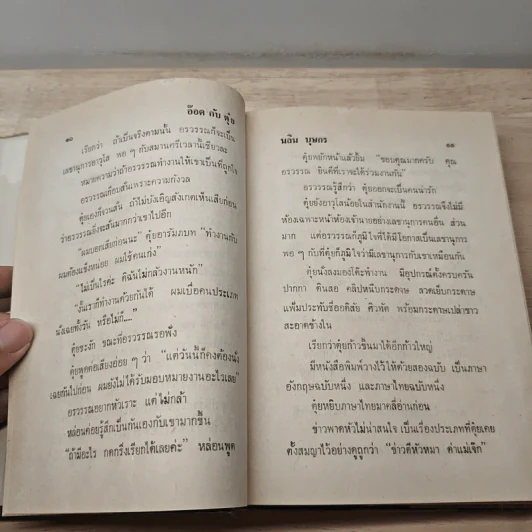 ๑๐
อ๊อด กับ ตุ้ย
เรียกว่า ถ้าเป็นจริงตามนั้น อรวรรณก็จะเป็น
เลขานุการอาวุโส พอ ๆ กับสมานศรีเวลานี้เชียวละ
หมายความว่าถ้าอรวรรณทำงานให้เขาเป็นที่ถูกใจ
อรวรรณก็ยอมสั่นเพราะความกังวล
ตุ้ยเองก็จวนสั่น ถ้าไม่บังเอิญสังเกตเห็นเสียก่อน
ว่าอรวรรณถึงจะสั่นมากกว่าเขาไปอีก
"ผมบอกเสียก่อนนะ" ตุ้ยอารัมภบท "ทำงานกับ
ผมต้องแข็งหน่อย ผมใช้คนเก่ง"
"ไม่เป็นไรค่ะ ดิฉันไม่กลัวงานหนัก"
"งั้นเราก็ทำงานด้วยกันได้ ผมเบื่อคนประเภท
นั่งเฉยทั้งวัน หรือไม่ก็...."
ตุ้ยชะงัก ขณะที่อรวรรณรอฟัง
ตุ้ยพูดต่อเสียงอ่อย ๆ ว่า "แต่วันนี้ก็คงต้องนั่ง
เฉยกันไปก่อน ผมยังไม่ได้รับมอบหมายงานอะไรเลย"
อรวรรณอยากหัวเราะ แต่ไม่กล้า
หล่อนค่อยรู้สึกเป็นกันเองกับเขามากขึ้น
"ถ้ามีอะไร กดกริ่งเรียกได้เลยค่ะ" หล่อนพูด
นลิน บุษกร
๑๑
ตุ้ยพยักหน้าแล้วยิ้ม "ขอบคุณมากครับ คุณ
อรวรรณ ยินดีที่เราจะได้ร่วมงานกัน"
อรวรรณรู้สึกว่า ตุ้ยออกจะเป็นคนน่ารัก
ตุ้ยยังอาวุโสน้อยในสำนักงานนี้ อรวรรณจึงไม่มี
ห้องเฉพาะหน้าห้องเจ้านายอย่างเลขานุการคนอื่น ส่วน
มาก แต่อรวรรณก็ภูมิใจที่ได้มีโอกาสเป็นเลขานุการ
พอ ๆ กับที่ตุ้ยก็ภูมิใจว่ามีเลขานุการกับเขาเหมือนกัน
ตุ้ยนั่งลงมองโต๊ะทำงาน มีอุปกรณ์ตั้งครบครัน
ปากกา ดินสอ คลิปหนีบกระดาษ ลวดเย็บกระดาษ
แฟ้มประทับชื่อกดิสัย ศิวพัด พร้อมกระดาษเปล่าขาว
สะอาดข้างใน
เรียกว่าตุ้ยก้าวขึ้นมาได้อีกก้าวใหญ่
มีหนังสือพิมพ์วางไว้ให้ด้วยสองฉบับ เป็นภาษา
อังกฤษฉบับหนึ่ง และภาษาไทยฉบับหนึ่ง
ตุ้ยหยิบภาษาไทยมาคลี่อ่านก่อน
ข่าวพาดหัวไม่น่าสนใจ เป็นเรื่องประเภทที่ตุ้ยเคย
ตั้งสมญาไว้อย่างดูถูกว่า "ข่าวตีหัวหมา ด่าแม่เจ๊ก"